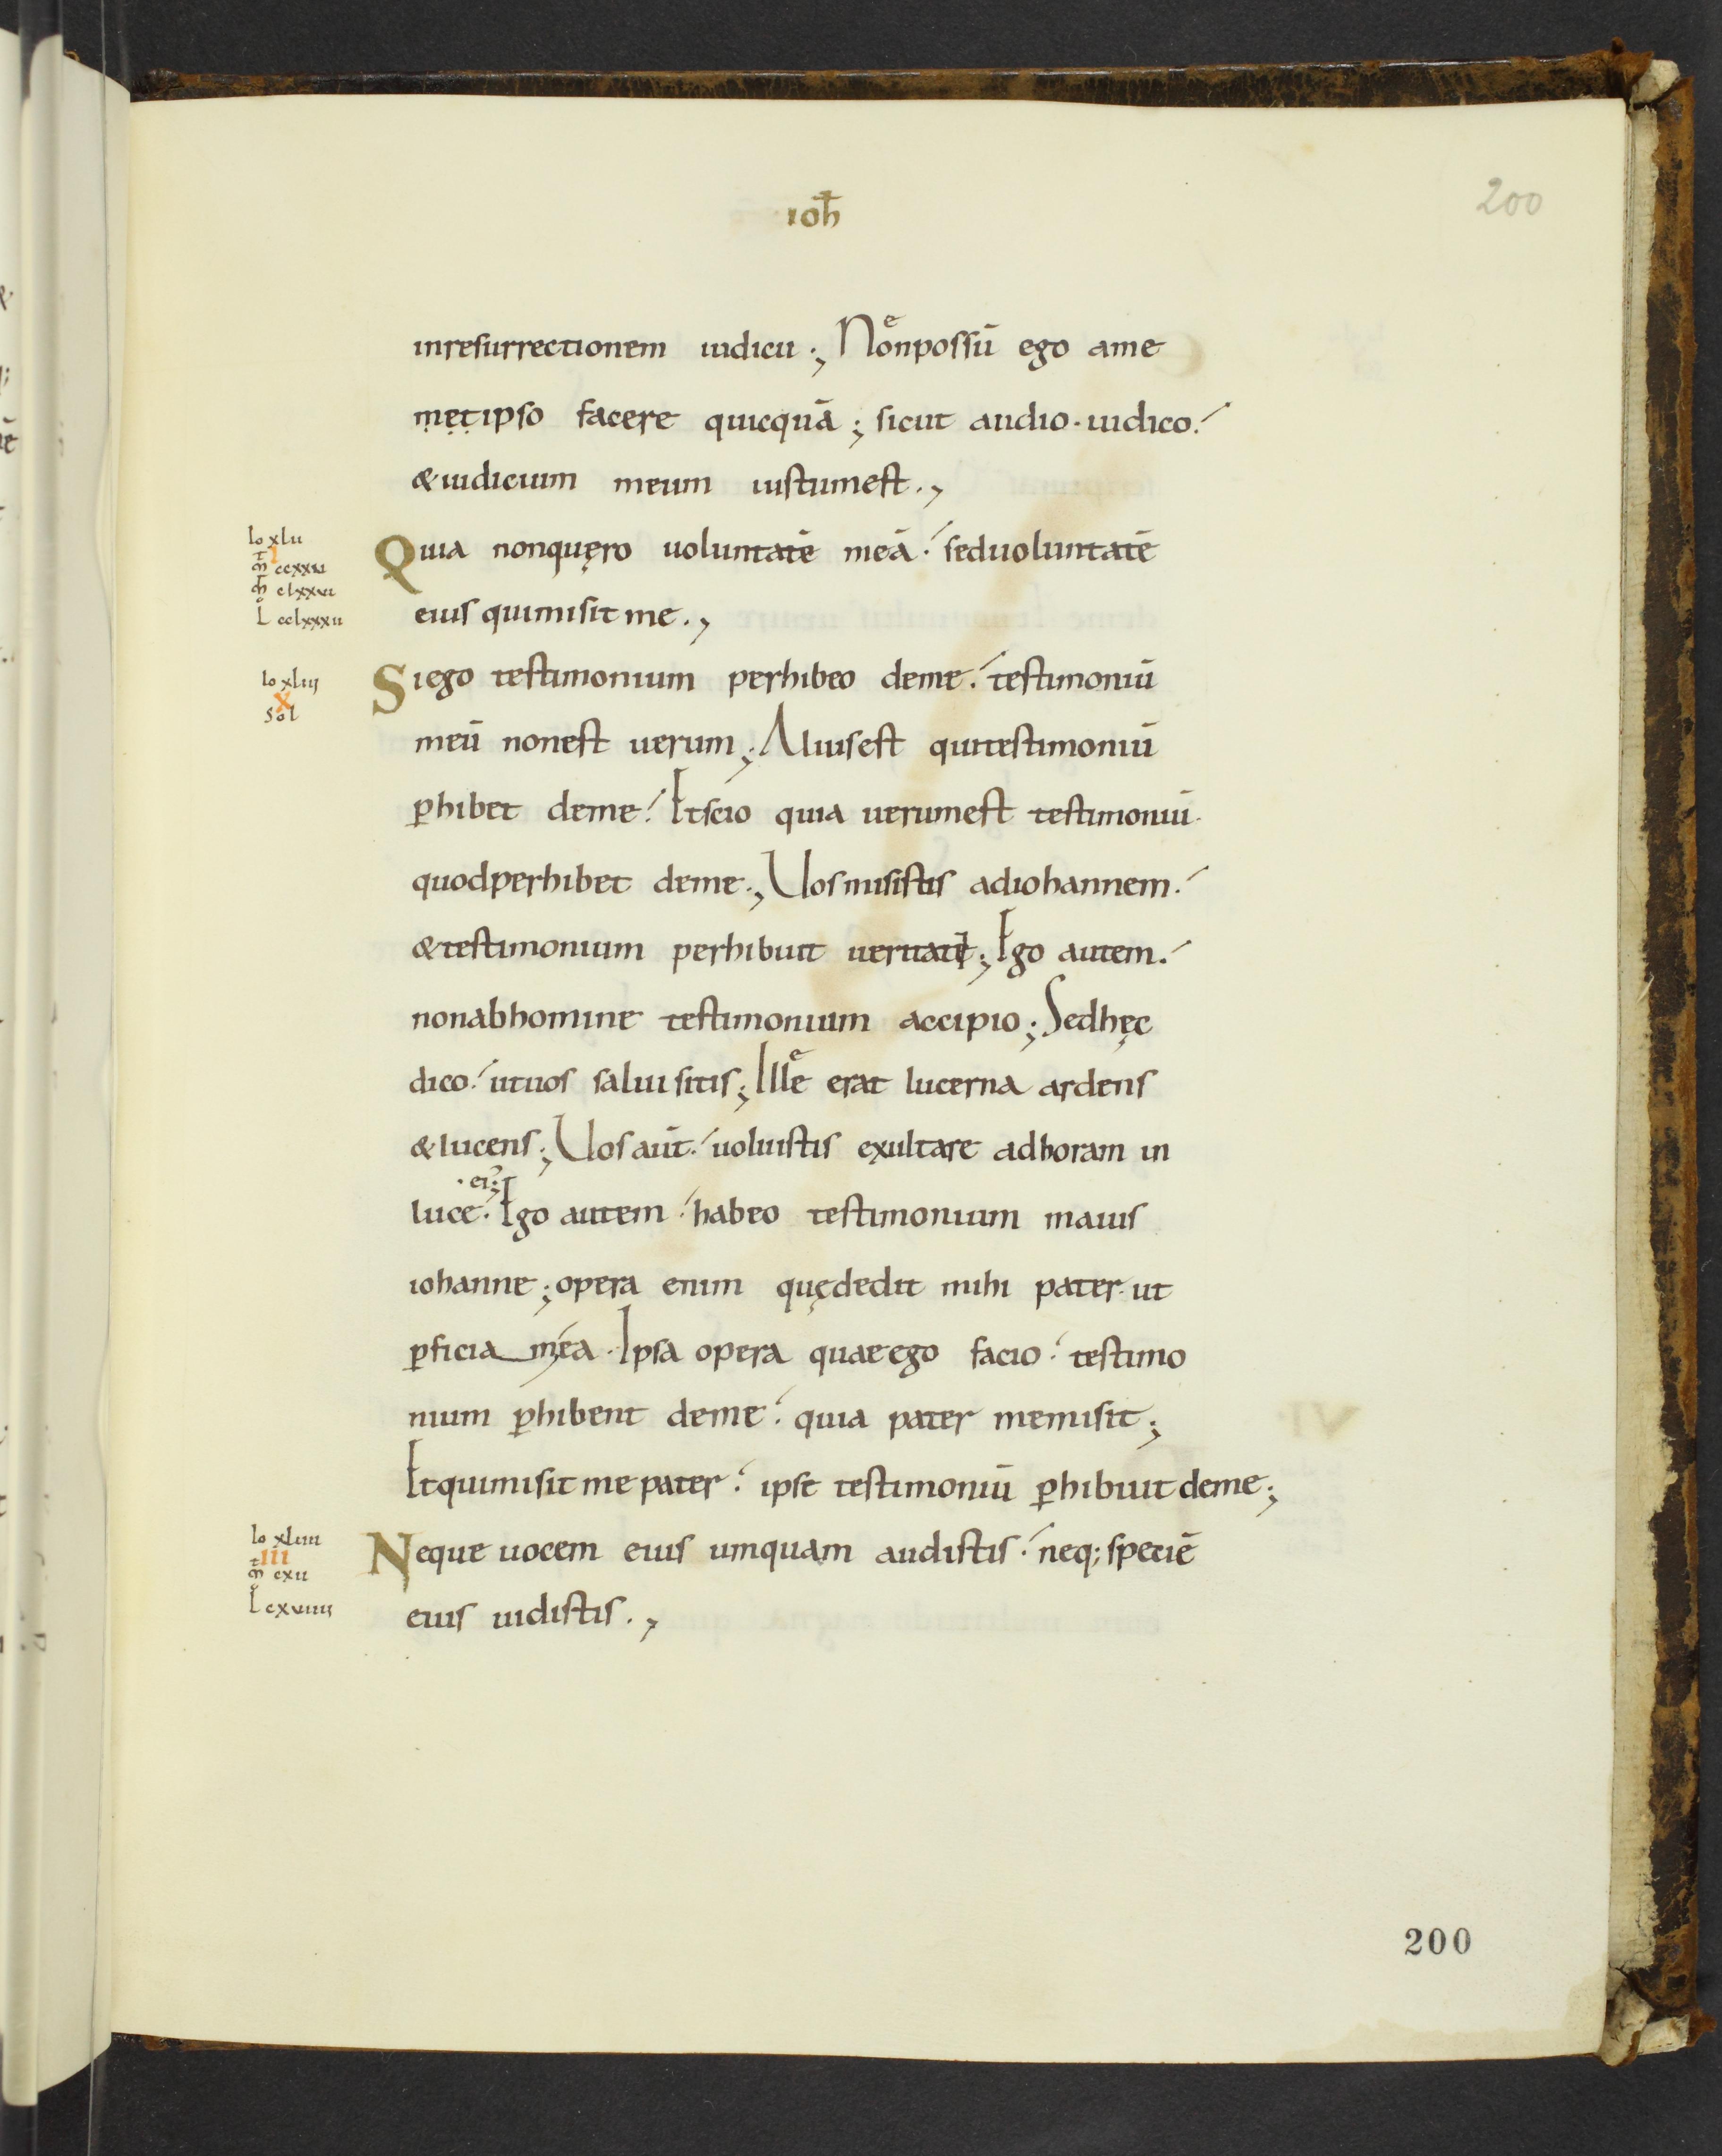 ioħ
200
inresurrectionem iudicii ; Nonpossū ego ame
metipso facere quicquā ; sicut audio · iudico :
& iudicium meum iustumest . ,
Io xlii
I
m̄ ccxxvi
m̄ clxxvi
L cclxxxii
Quia nonquęro uoluntatē meā : seduoluntatē
eius quimisit me . ,
Io xliii
X
Sol
Siego testimonium perhibeo deme : testimoniū
meū nonest uerum ; Aliusest quitestimoniū
ꝑhibet deme : Etscio quia uerumest testimoniū ·
quodperhibet deme ., Uosmisistis adiohannem :
& testimonium perhibuit ueritati ; Ego autem :
nonabhomine testimonium accipio ; Sedhęc
dico : utuos saluisitis ; Ille erat lucerna ardens
& lucens ; Uos aūt : uoluistis exultare adhoram in
· ei' ;
luce · Ego autem : habeo testimonium maius
iohanne ; opera enim quędedit mihi pater · ut
ꝑficiam ea · Ipsa opera quaeego facio : testimo
nium ꝑhibent deme : quia pater memisit ;
Etquimisit me pater : ipse testimoniū ꝑhibuit deme ;
Io xliiii
III
m̄ cxii
L cxviiii
Neque uocem eius umquam audistis : neq; speciē
eius uidistis . ,
200